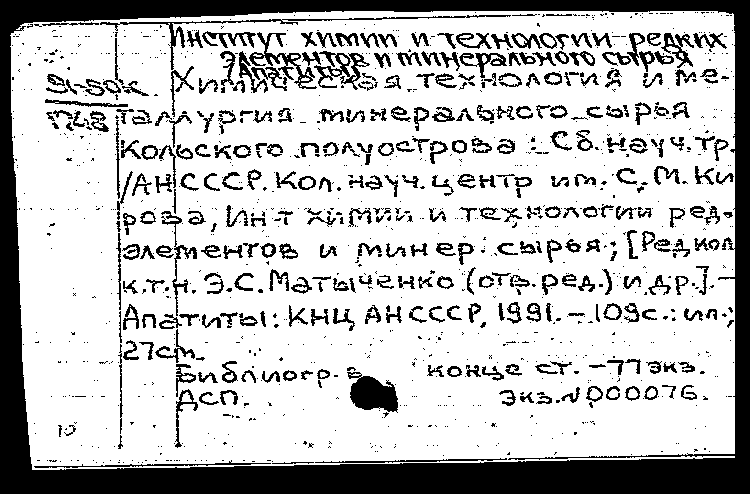 Институт химии и технологии редких
элементов и минерального сырья
(Апатиты)
Химическая технология и ме-
таллургия минерального сырья
Кольского полуострова : Сб. науч. тр.
/АН СССР. Кол. науч. центр им. С. М. Ки
рова, Ин-т химии и технологии ред-
элементов и минер. сырья; [Редкол
к.т.н. Э.С. Матыченко (отв. ред.) и др.]. –
Апатиты: КНЦ АН СССР, 1991. – 109с.: ил.;
27см.
Библиогр. в конце ст. – 77 экз.
ДСП. Экз. № 000076.
10